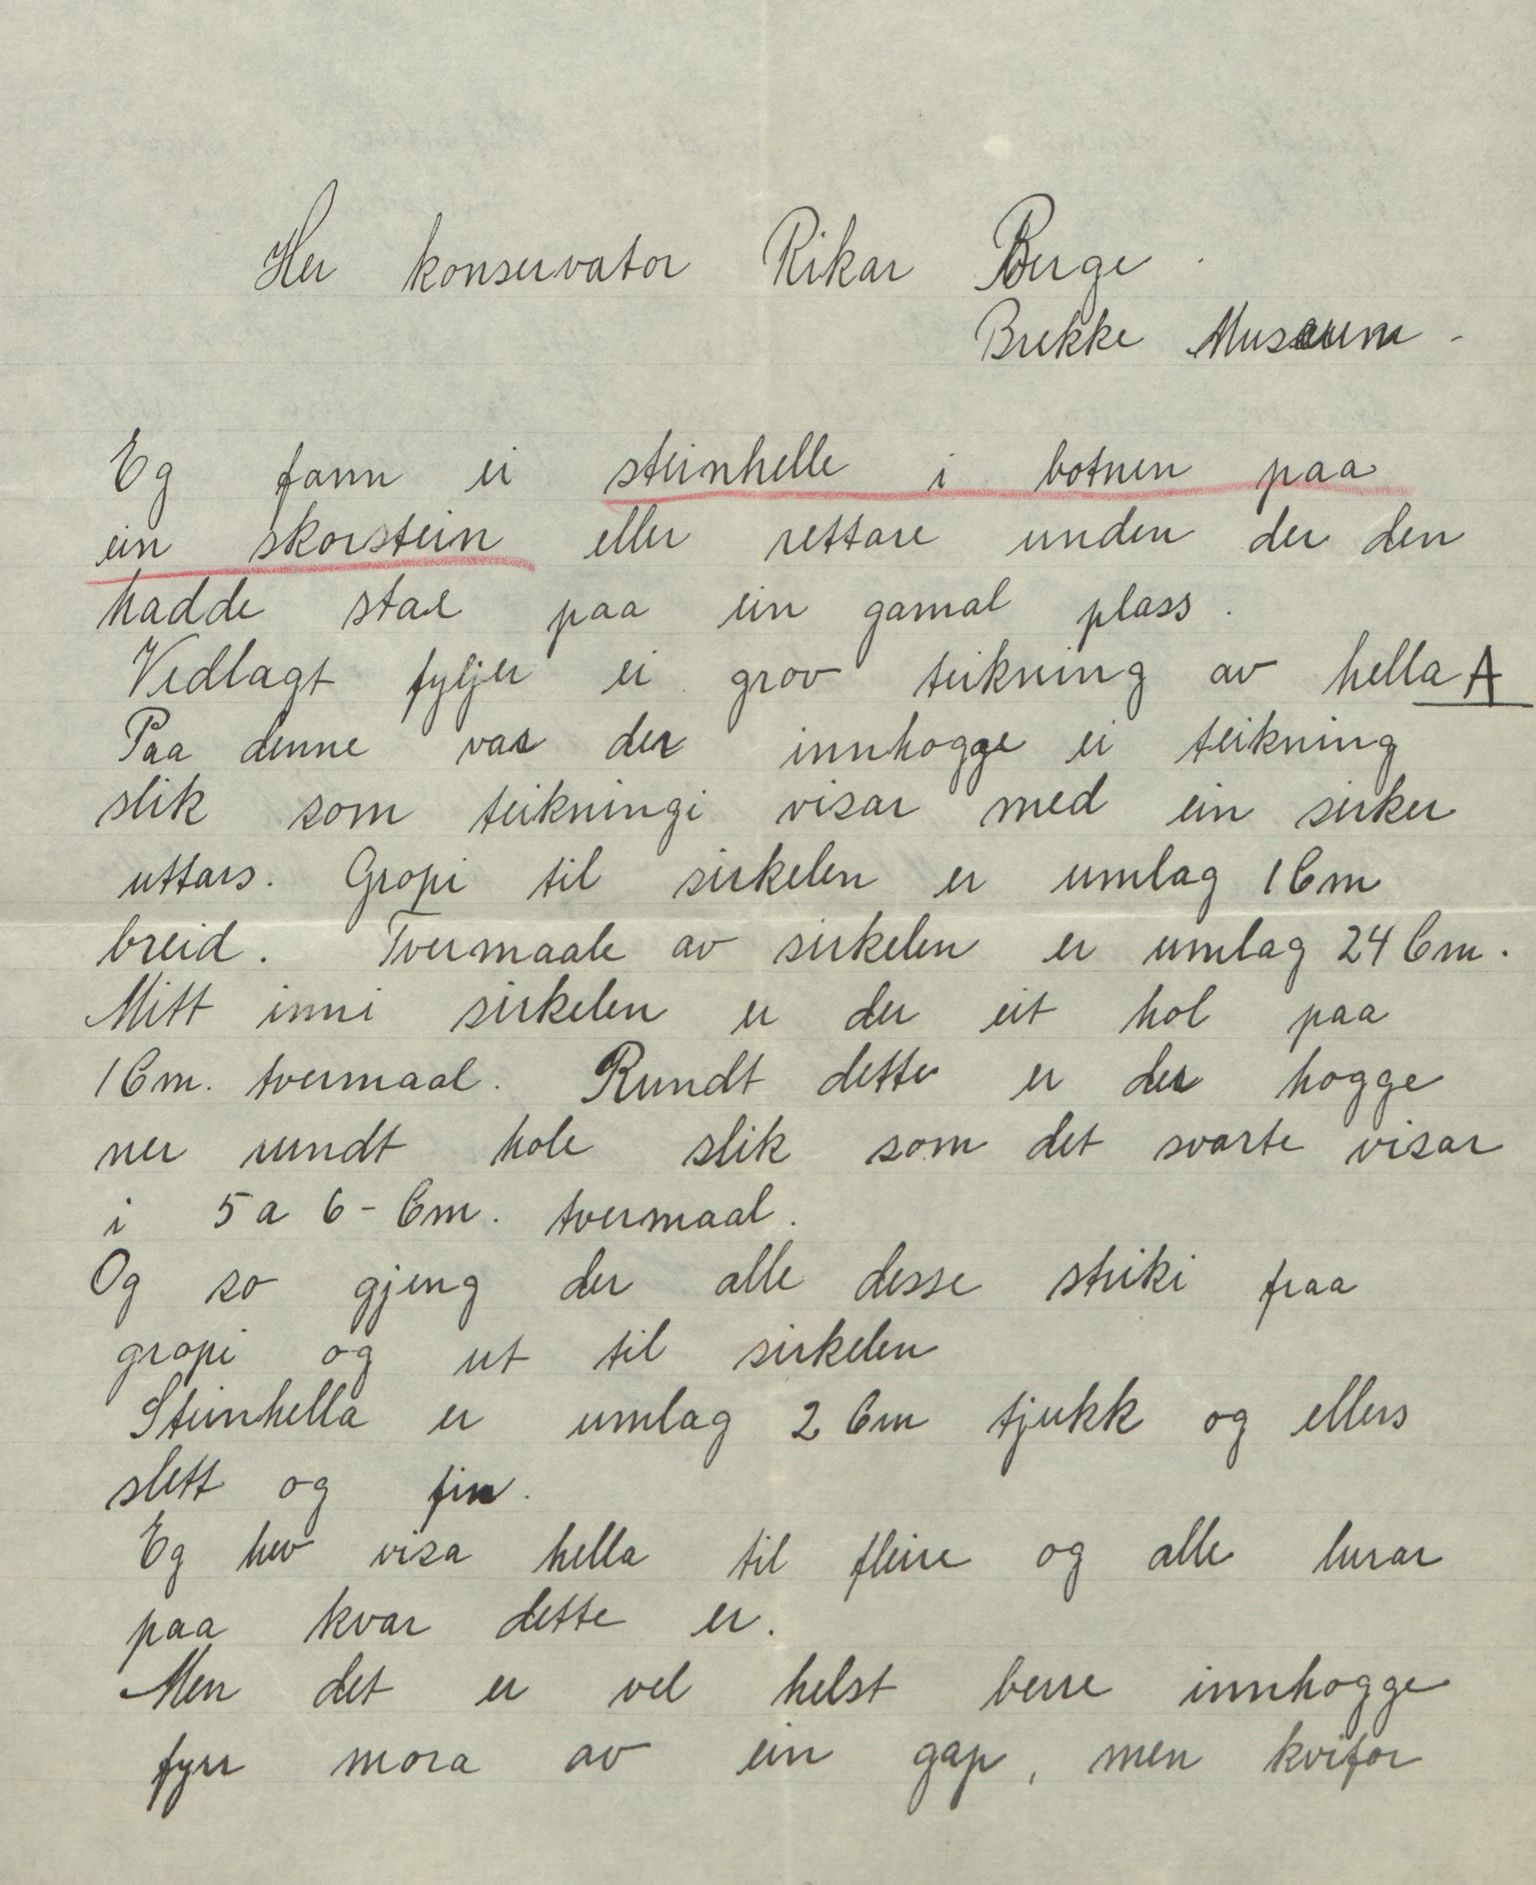 Her konservator Rikar Berge.
Brekke Museum -
Eg fann ei steinhelle i botnen paa
ein skorstein eller rettare unden der den
hadde stae paa ein gamal plass.
Vedlagt fyljer ei grov teikning av hella A
Paa denne var der innhogge ei teikning
slik som teikningi visar med ein sirker
uttars. Gropi til sirkelen er umlag 1 Cm
breid. Tvermaale av sirkelen er umlag 24 Cm.
Mitt inni sirkelen er der eit hol paa
1 Cm. tvermaal. Rundt dette er der hogge
ner rundt hole slik som det svarte visar
i 5 a 6 - Cm. tvermaal.
Og so gjeng der alle desse streki fraa
gropi og ut til sirkelen
Steinhella er umlag 2 Cm tjukk og ellers
slett og fin.
Eg hev visa hella til fleire og alle lurar
paa kvar dette er.
Men det er vel helst berre innhogge
fyrr mora av ein gap, men kvifor